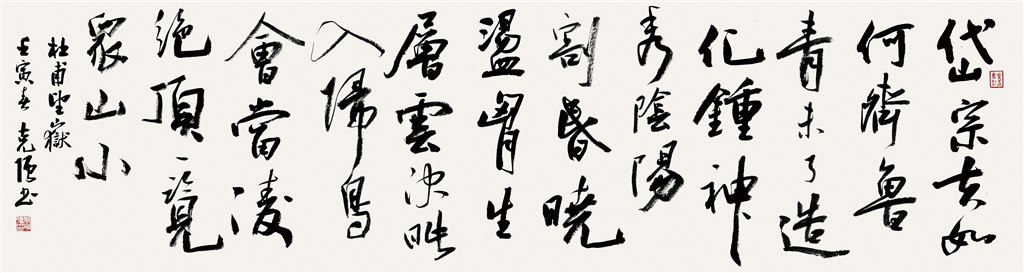 岱宗夫如
何齊魯
青未了造
化鍾神
秀陰陽
割昏曉
盪胷生
層雲決眦
入歸鳥
會當凌
絕頂一覽
眾山小
杜甫望嶽
壬寅春 克强书